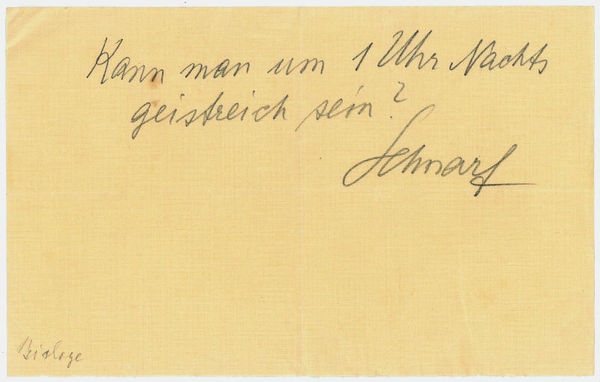 Kann man um 1 Uhr Nachts
geistreich sein?
Biologe